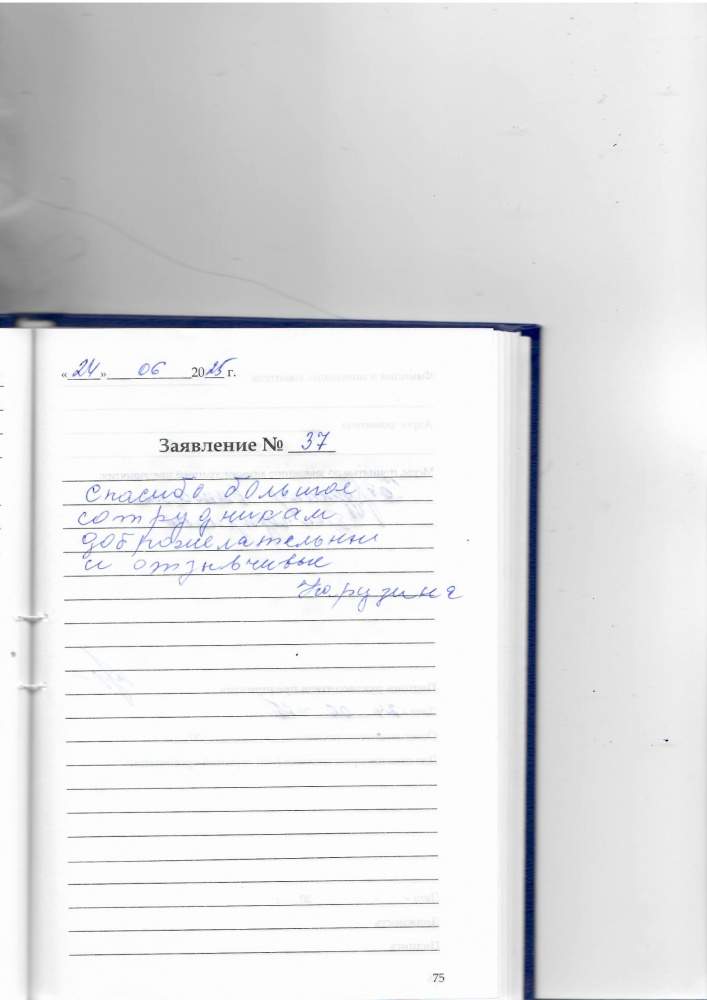 «24» 06 2025 г.
Заявление № 37
Спасибо большое
сотрудникам
доброжелательные
и отзывчивые
75